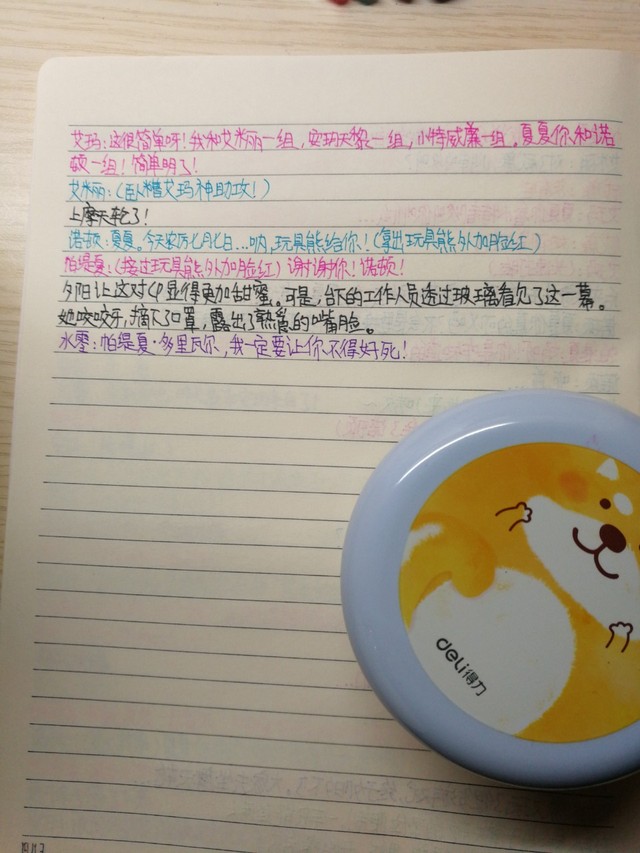 艾玛：这很简单呀！我和艾米丽一组，安玥天黎一组，小特威廉一组。夏夏你和诺
顿一组！简单明了！
艾米丽：（卧槽艾玛神助攻！）
上摩天轮了！
诺顿：夏夏。今天农历七月七日…呐，玩具熊给你！（拿出玩具熊外加脸红）
帕缇夏：（接过玩具熊外加脸红）谢谢你！诺顿！
夕阳让这对CP显得更加甜蜜。可是，台下的工作人员透过玻璃看见了这一幕。
她咬咬牙，摘下了口罩，露出了熟悉的嘴脸。
水零：帕缇夏·多里瓦尔，我一定要让你不得好死！
deli得力